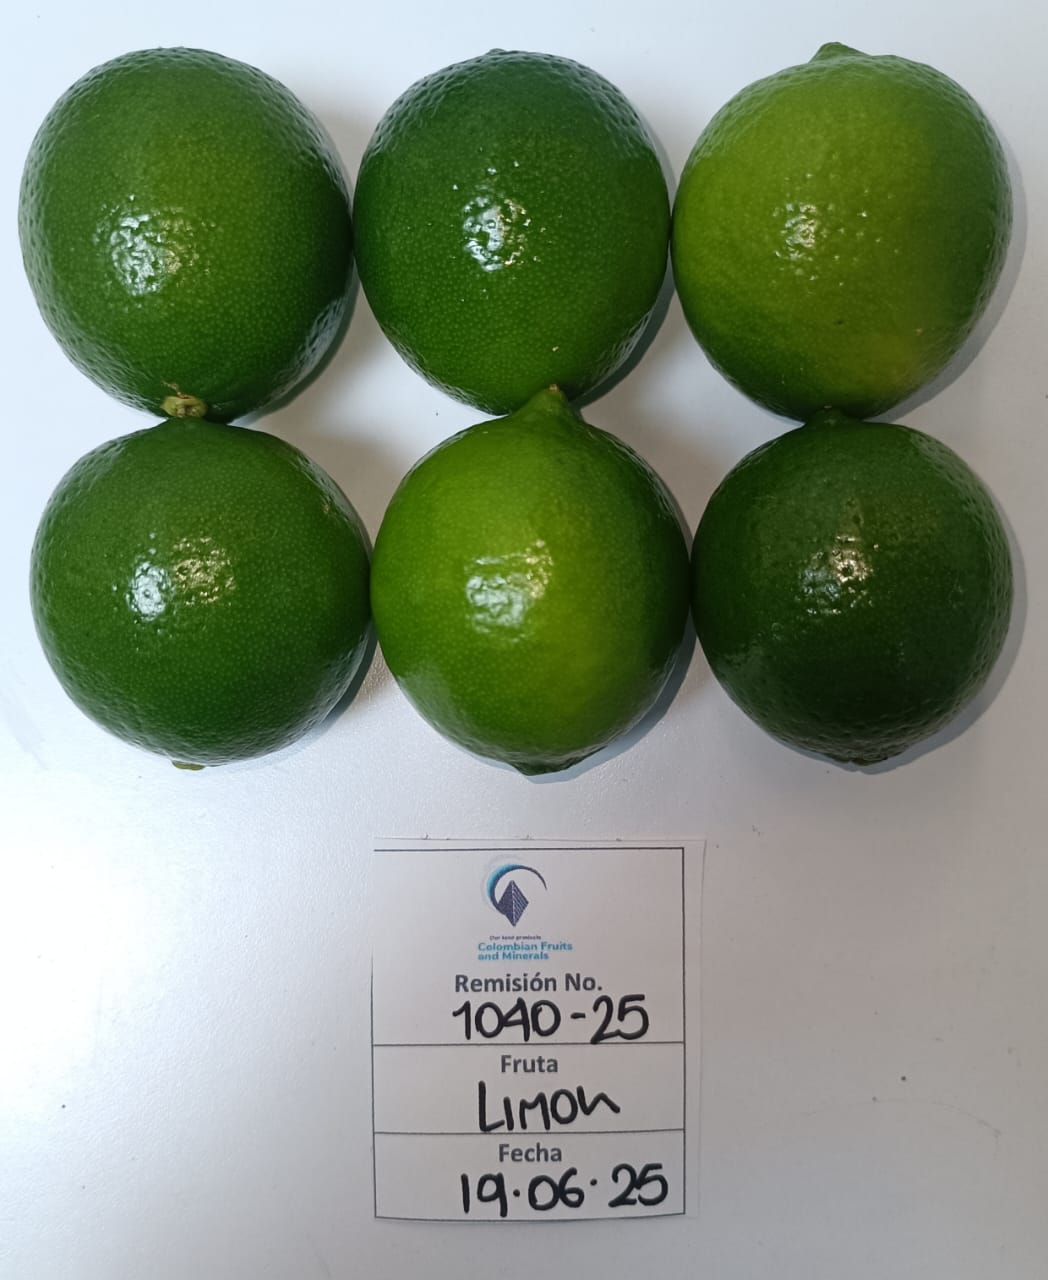 Our best products
Colombian Fruits
and Minerals
Remisión No.
1040-25
Fruta
Limon
Fecha
19.06.25